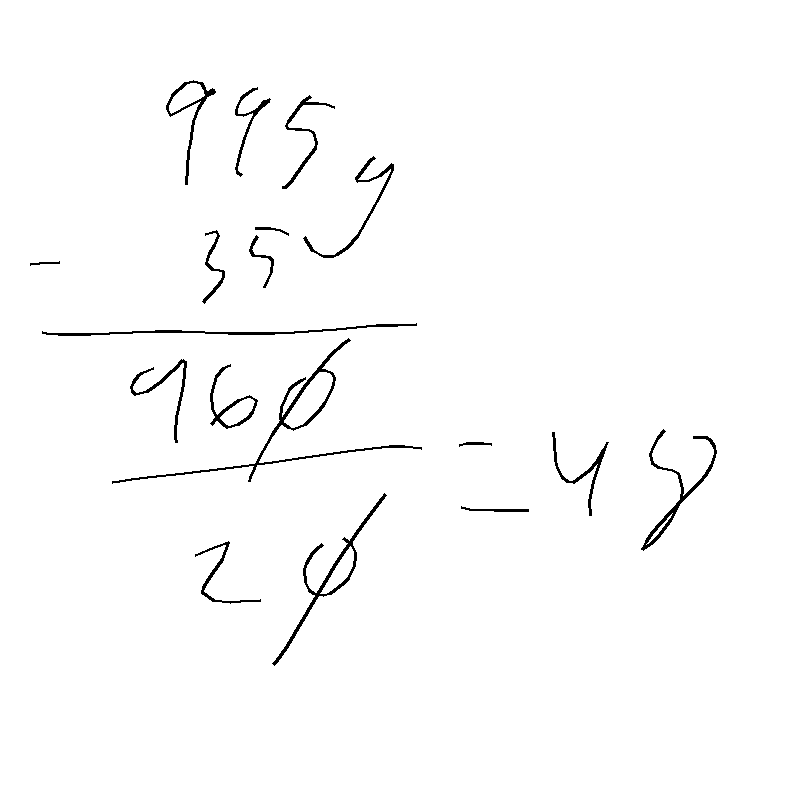 995y
- 35
960
20
= 48